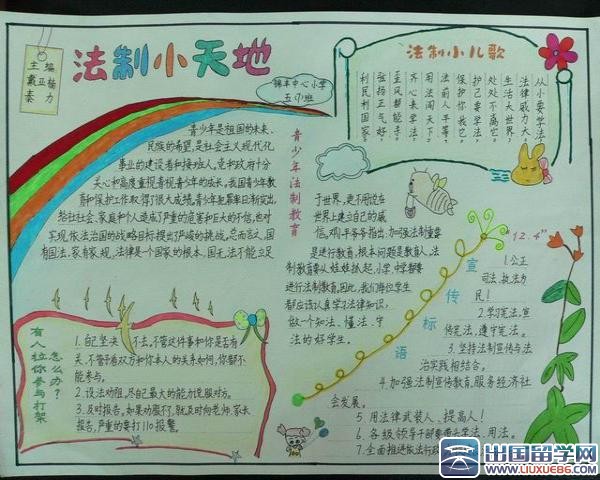 主编
戴亚杨
泰力
法制小天地
锦丰中心小学
五(1)班
法制小儿歌
从小要学法,
法律威力大。
生活大世界,
处处不离它。
护己要学法,
保护你我它。
法前人平等,
用法闯天下。
齐心来学法,
歪风都能手。
弘扬正气好,
利民利国家。
青少年法制教育
青少年是祖国的未来、
民族的希望,是社会主义现代化
事业的建设者和接班人。党和政府十分
关心和高度重视青少年的成长。我国青少年教
育和保护工作取得了很大成绩。青少年犯罪率日渐突出,
给社会、家庭和个人造成了严重的危害和巨大的不信,也对
实现依法治国的战略目标提出了严峻的挑战。总而言之,国
有国法,家有家规,法律是一个国家的根本。国无法不能立足
于世界,更不用说在
世界上建立自己的威
信。邓平爷爷指出:加强法制重要
是进行教育,根本问题是教育人,法
制教育要从娃娃抓起,小学、中学都要
进行法制教育。因此,我们每位学生
都应该认真学习法律知识,
做一个知法、懂法、守
法的好学生。
有人拉你参与打架
怎么办?
1.自己坚决不去,不管这件事和你是否有
关,不管看双方和你本人的关系如何,你都不
能参与。
2.设法劝阻,尽自己最大的能力说服对方。
3.及时报告。如果劝服不了,就及时向老师、家长
报告,严重的要打110报警。
宣传标语
"12.4"
1.公正
司法,执法为
民!
2.学习宪法,宣
传宪法,遵守宪法。
3.坚持法制宣传与法
治实践相结合。
4.加强法制宣传教育,服务经济社
会发展。
5.用法律武装人、提高人!
6.各级领导干部要带头学法、用法。
7.全面推进依法行政
出国留学网
WWW.LIUXUE86.COM